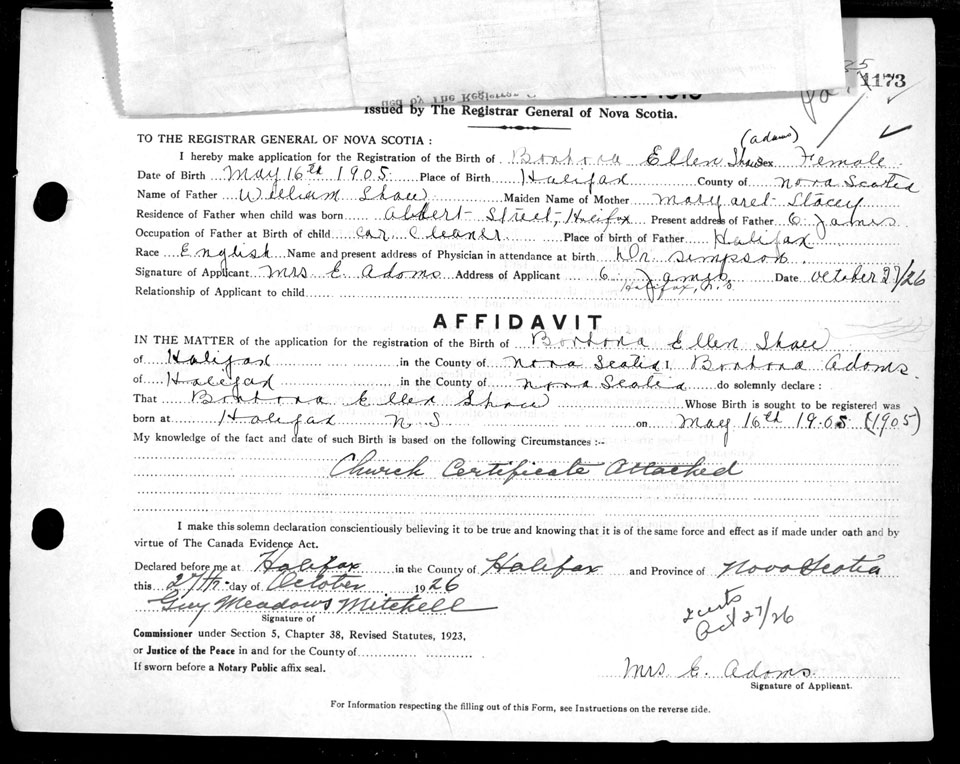 1173
Issued by The Registrar General of Nova Scotia.
TO THE REGISTRAR GENERAL OF NOVA SCOTIA :
(Adams)
I hereby make application for the Registration of the Birth of Barbara Ellen Shaw Sex Female
Date of Birth May 16th 1905 Place of Birth Halifax County of Nova Scotia
Name of Father William Shaw Maiden Name of Mother Margaret Stacey
Residence of Father when child was born Albert Street, Halifax Present address of Father 6 James
Occupation of Father at Birth of child Car Cleaner Place of birth of Father Halifax
Race English Name and present address of Physician in attendance at birth Dr Simpson
Signature of Applicant Mrs E Adams Address of Applicant 6 James Date October 27/26
Halifax, N. S
Relationship of Applicant to child
AFFIDAVIT
IN THE MATTER of the application for the registration of the Birth of Barbara Ellen Shaw
of Halifax in the County of Nova Scotia I, Barbara Adams
of Halifax in the County of Nova Scotia do solemnly declare :
That Barbara Ellen Shaw Whose Birth is sought to be registered was
born at Halifax N S on May 16th 1905 (1905)
My knowledge of the fact and date of such Birth is based on the following Circumstances :--
Church Certificate Attached
I make this solemn declaration conscientiously believing it to be true and knowing that it is of the same force and effect as if made under oath and by
virtue of The Canada Evidence Act.
Declared before me at Halifax in the County of Halifax and Province of Nova Scotia
this 27th day of October 1926
Guy Meadows Mitchell
Signature of
Oct 27/26
Commissioner under Section 5, Chapter 38, Revised Statutes, 1923,
or Justice of the Peace in and for the County of
If sworn before a Notary Public affix seal.
Mrs E. Adams
Signature of Applicant.
For Information respecting the filling out of this Form, see Instructions on the reverse side.